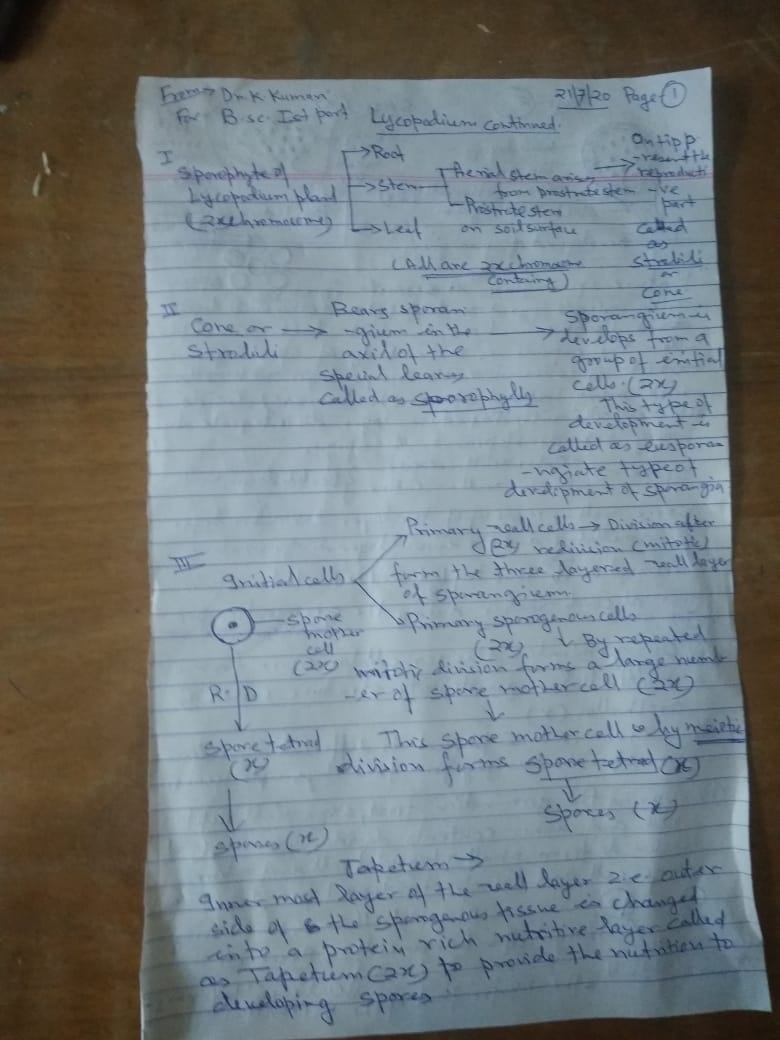 From → Dr. K Kumari 21/7/20 Page-1
For B.sc. Ist part Lycopodium continued.
I
Sporophyte of
Lycopodium plant
(2x chromosome)
→ Root
→ Stem
→ Leaf
Aerial stem arises
from prostrate stem
Prostrate stem
on soil surface
(All are 2x chromosome
containing)
On tip p
-resent the
reproducti
-ve
part
called
as
strobili
or
cone
II
Cone or →
Strobili
Bears sporan
-gium in the →
axil of the
special leaves
called as sporophylls
Sporangium is
develops from a
group of initial
cells. (2x)
This type of
development is
called as eusporan
-ngiate type of
development of sporangia
III
Initial cells
Primary wall cells → Division after
(2x) redivision (mitotic)
form the three layered wall layer
of sporangium.
Primary sporogenous cells
(2x) ↓ By repeated
mitotic division forms a large numb
-er of spore mother cell (2x)
↓
This spore mother cell is by meiotic
division forms spore tetrad (x)
↓
Spores (x)
spore
mother
cell
(2x)
R. D
spore tetrad
(x)
↓
spores (x)
Tapetum →
Inner most layer of the wall layer i.e outer
side of the sporogenous tissue is changed
into a protein rich nutritive layer called
as Tapetum (2x) to provide the nutrition to
developing spores